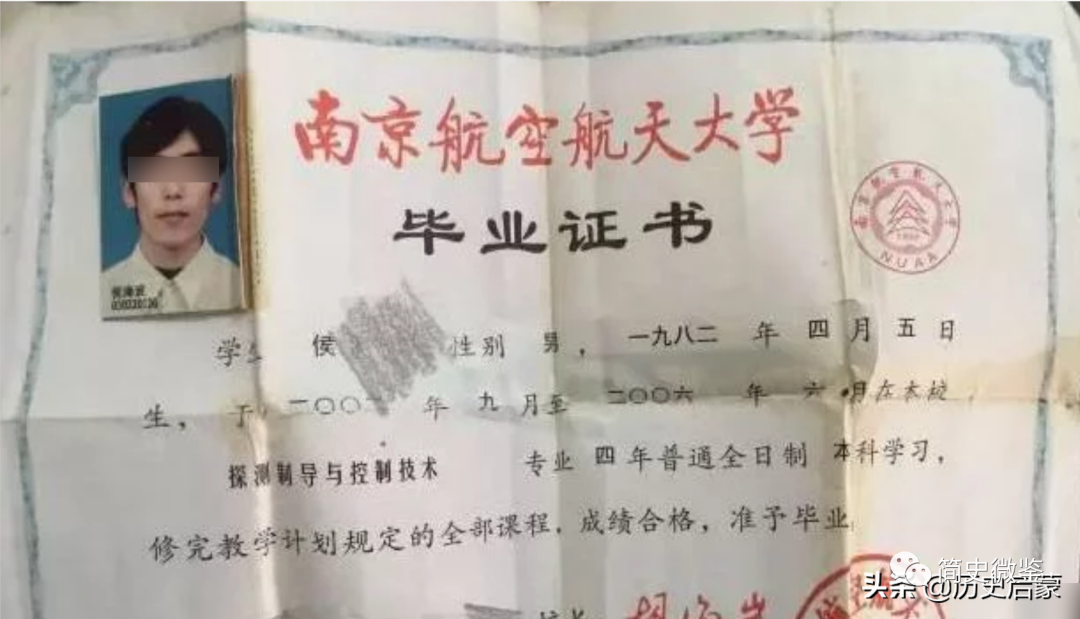 南京航空航天大学
毕业证书
南京航空航天大学
NUAA
学生 侯 性别 男，一九八二 年 四 月 五 日
生，于 二〇〇 年 九 月至 二〇〇六 年 六 月在本校
探测制导与控制技术 专业 四 年普通全日制 本科学习，
修完教学计划规定的全部课程，成绩合格，准予毕业
校长
简史微鉴
头条 @历史启蒙